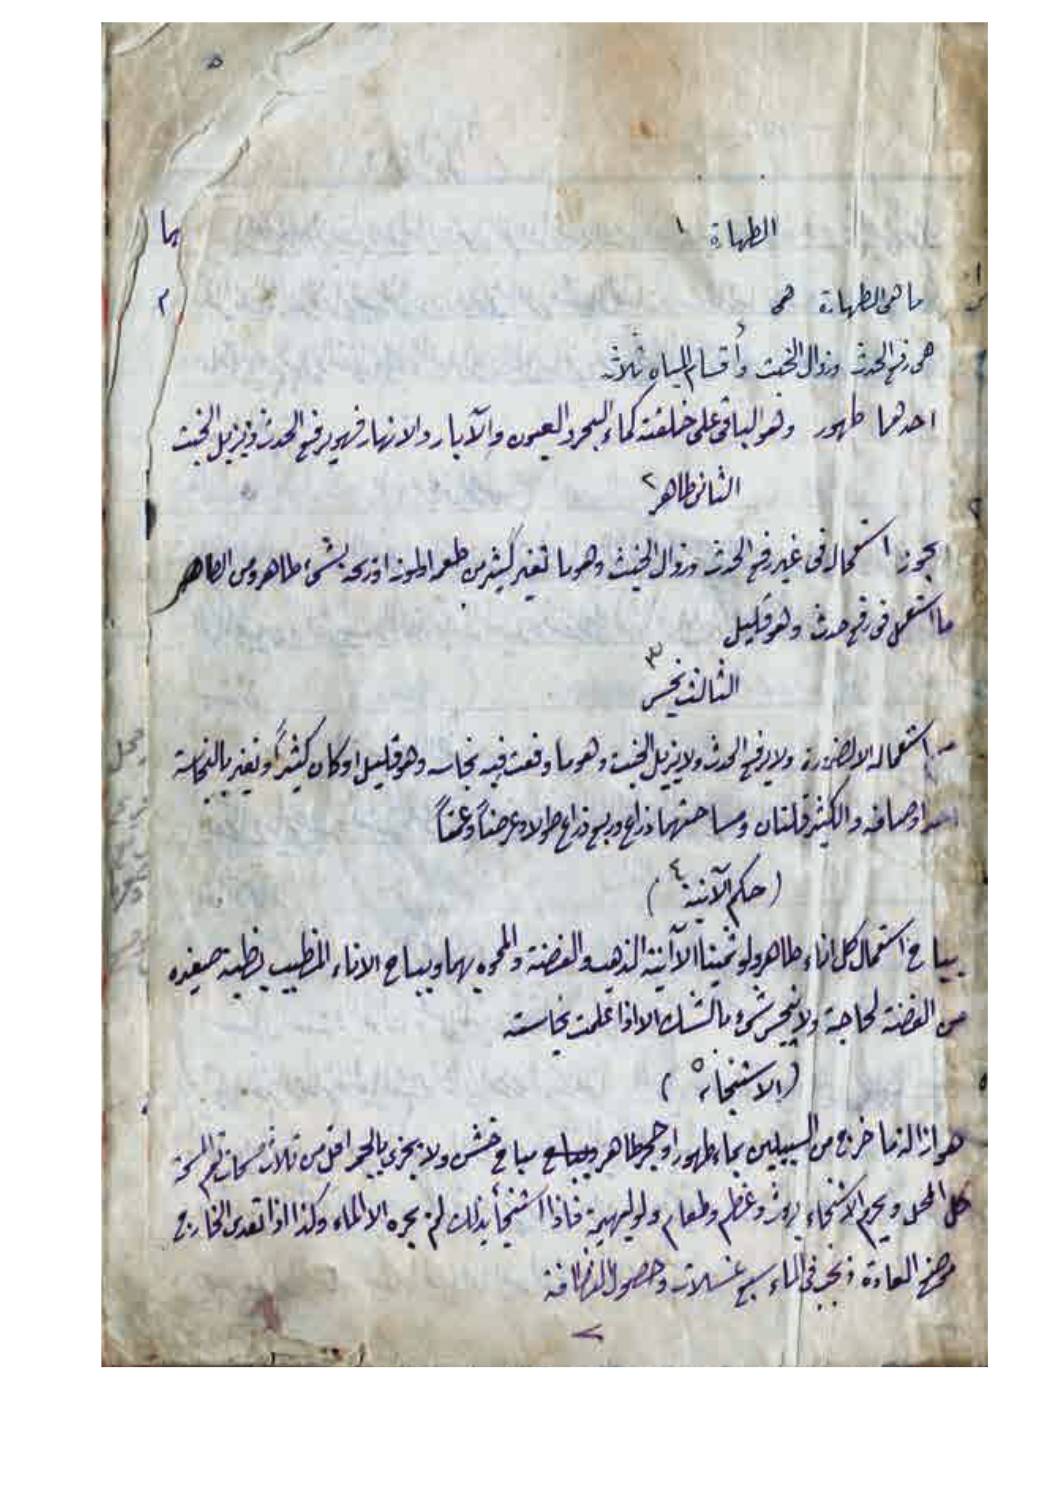 الطهاة ١
ما هى الطهارة هى
هى رفع الحدث وزوال الخبث وأقسام المياه ثلاثة
احدهما طهور وهو الباقى على خلقته كماء البحر والعيون والآبار والانهار فهو يرفع الحدث ويزيل الخبث
الثانى طاهر ٢
يجوز استعماله فى غير رفع الحدث وزوال الخبث وهو ما تغير كثير من طعم اولون اوريحه بشىء طاهر ومن الطاهر
ما استعمل فى رفع حدث وهو قليل
الثالث نجس ٣
استعماله الا لضرورة ولا يرفع الحدث ولا يزيل الخبث وهو ما وقعت فيه نجاسه وهو قليل او كان كثيراً وتغير بالنجاسة
اوصافه والكثير قلتان ومساحتهما ذراع وربع ذراع طولا وعرضاً وعمقاً
(حكم الآنية ٤)
يباح استعمال كل اناء طاهر ولو ثمينا الا آنية الذهب والفضة والمموه بهما ويباح الاناء المظبب بظبة صغيره
من الفضة لحاجة ولا ينجس شىء بالشك الا اذا علمت نجاسته
(الاستنجاء ٥)
هو ازالة ما خرج من السبيلين بماء طهور او حجر طاهر مباح خشن ولا يجزى بالحجر اقل من ثلاث مسحات تعم المسحة
كل المحل ويحرم الاستنجاء بروث وعظم وطعام ولو لبهيمة فاذا استنجأ بذلك لم يجزه الا الماء وكذا اذا تعدى الخارج
موضع العادة ويجب فى الماء سبع غسلات وحصول النظافة